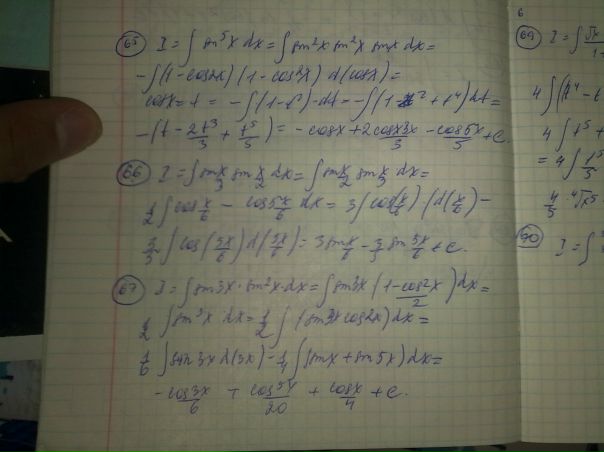 65 I = ∫ sin⁵x dx = ∫ sin²x sin²x sinx dx =
-∫(1-cos²x)(1-cos²x) d(cosx) =
cosx = t = -∫(1-t²)·dt = -∫(1-2t²+t⁴)dt =
-(t - 2t³/3 + t⁵/5) = -cosx + 2cos³x/3 - cos⁵x/5 + c.
66 I = ∫ sin x/3 sin x/2 dx = ∫ sin x/2 sin x/3 dx =
1/2 ∫ cos x/6 - cos 5x/6 dx = 3∫ cos(x/6)·(d(x/6) -
3/5 ∫ cos(5x/6) d(5x/6) = 3 sin x/6 - 3/5 sin 5x/6 + c.
67 I = ∫ sin3x · sin²x · dx = ∫ sin3x (1-cos2x/2) dx =
1/2 ∫ sin³x dx = 1/2 ∫ (sin3x cos2x) dx =
1/6 ∫ sin 3x d(3x) - 1/4 ∫ (sinx + sin 5x) dx =
-cos3x/6 + cos5x/20 + cosx/4 + c.
6
69 I = ∫ √x
4∫(t⁴ - t
4∫ t⁵ +
= 4∫ t⁵/5
4/5 · ⁴√x⁵
70 I = ∫